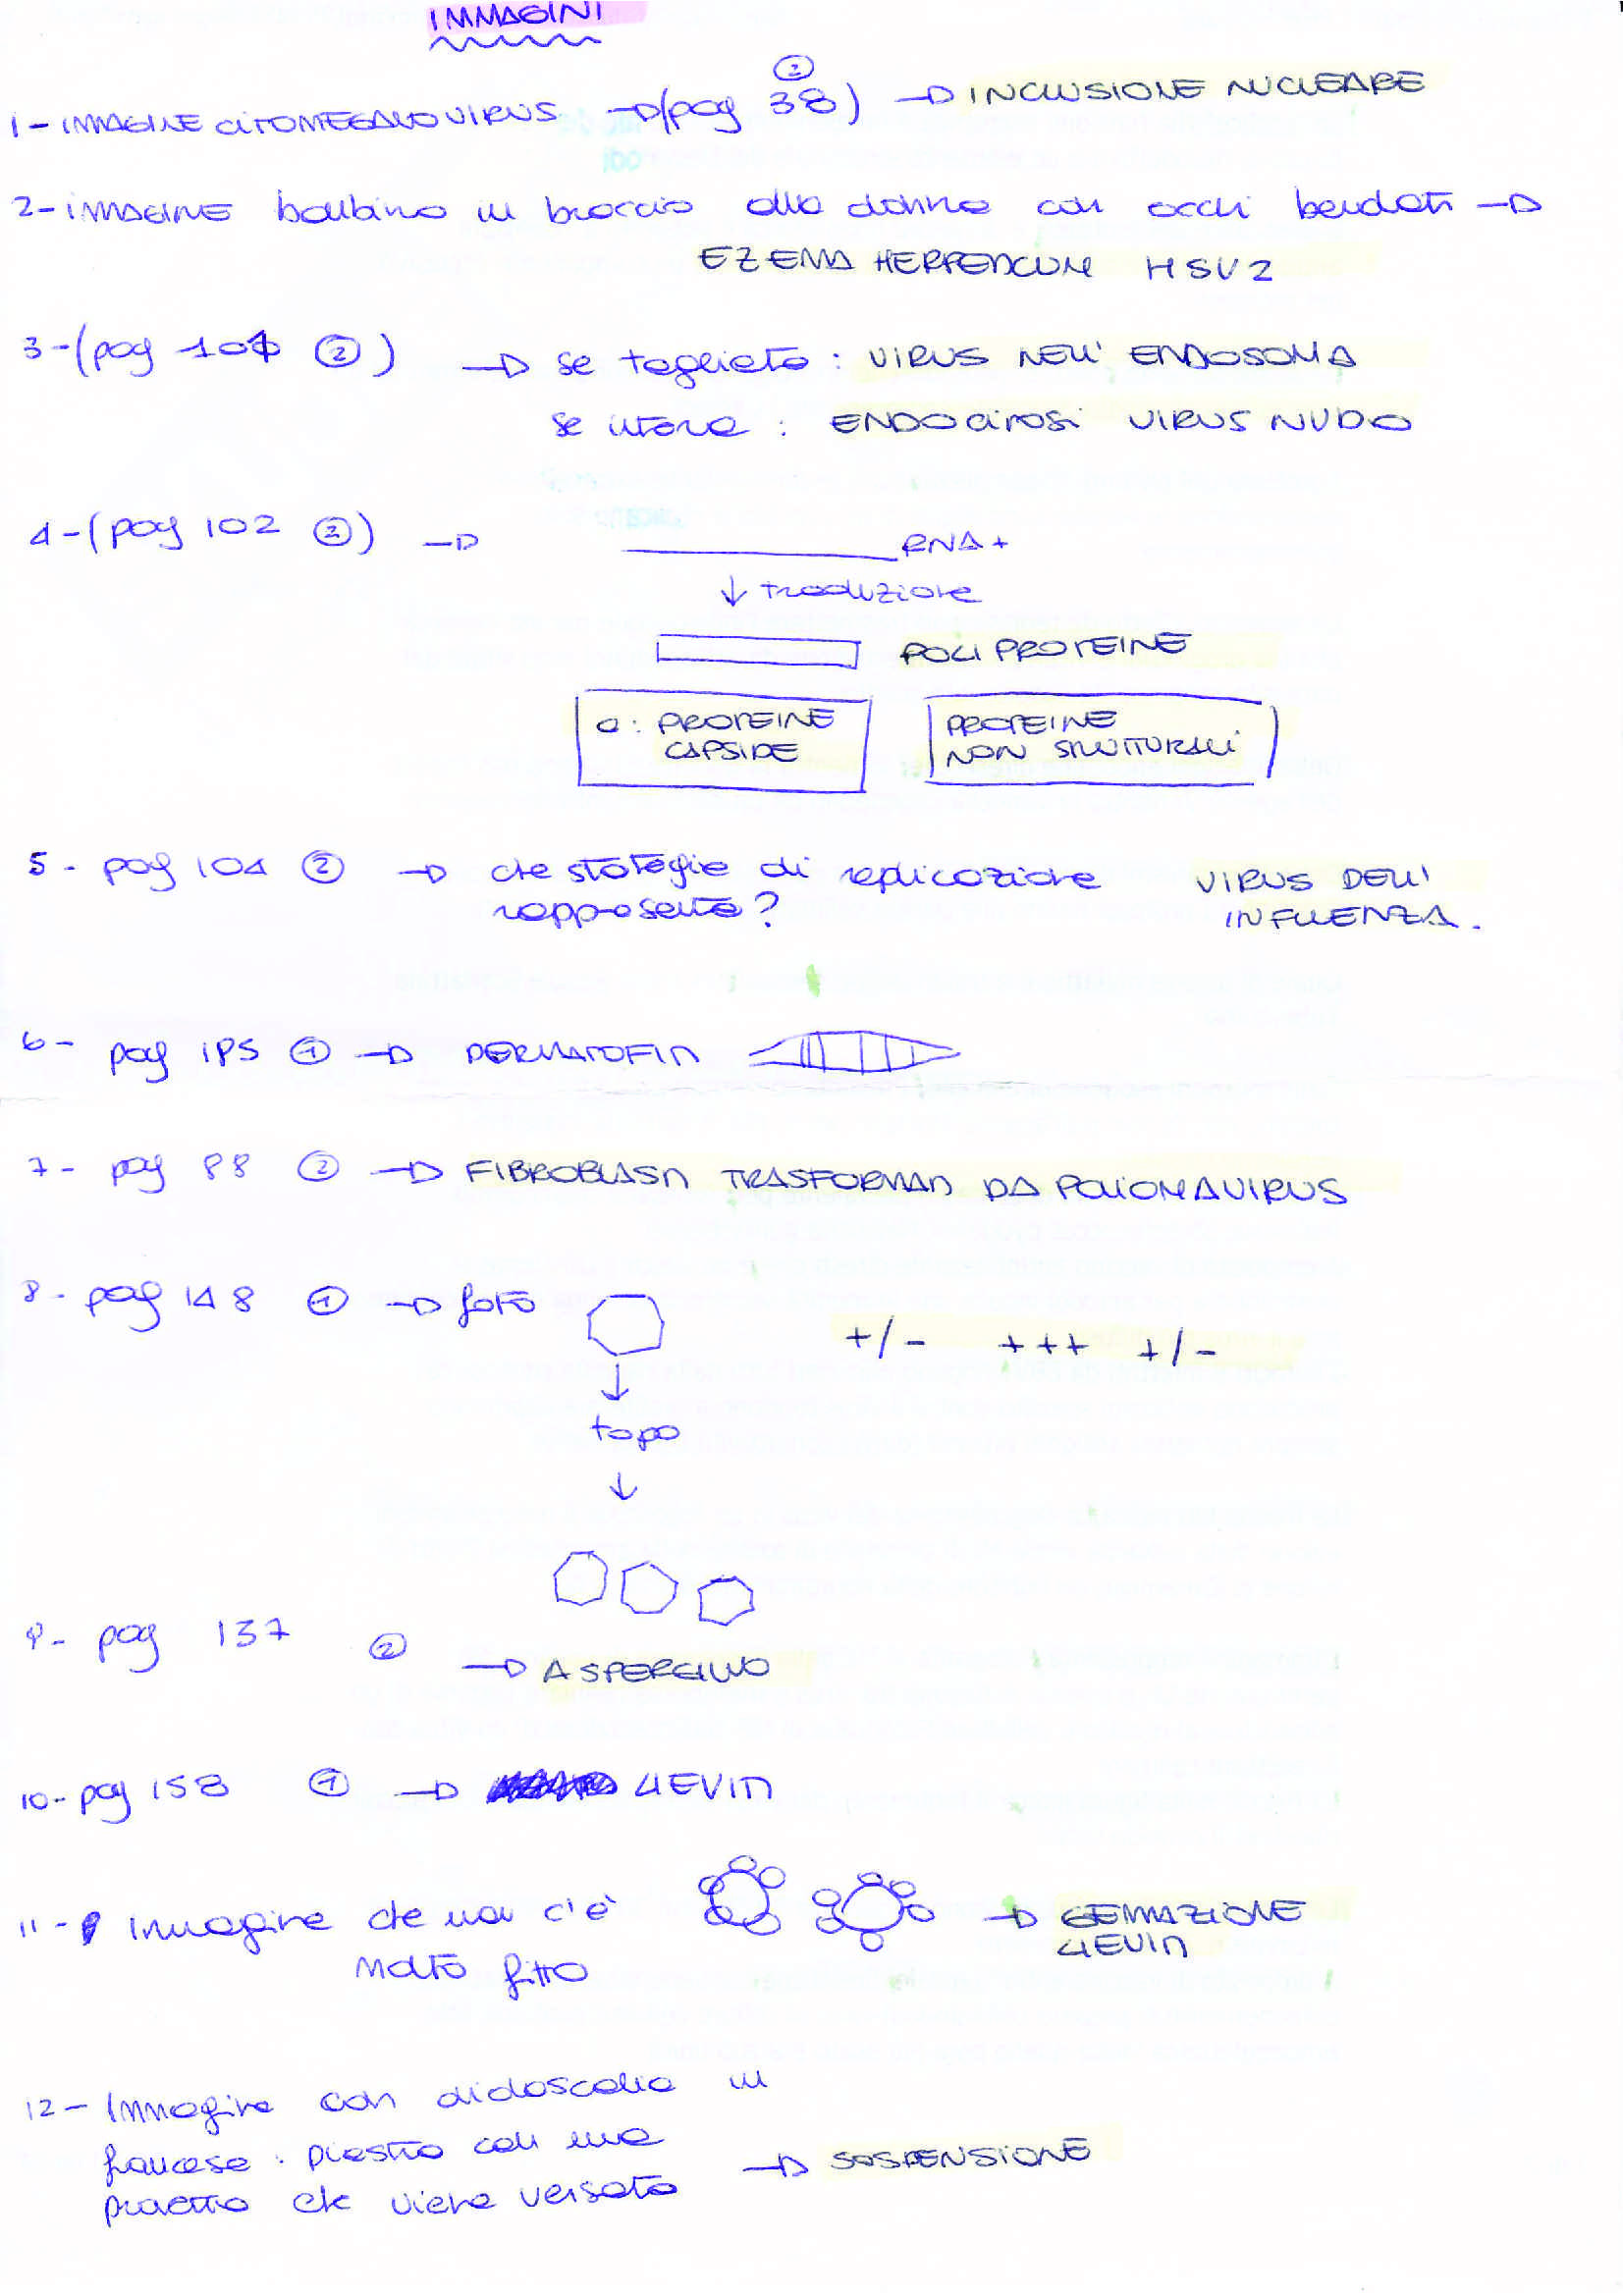 IMMAGINI
1 - IMMAGINE CITOMEGALOVIRUS → (pag 38) ② → INCLUSIONE NUCLEARE
2 - IMMAGINE bambino in braccio alla donna con occhi bendati →
EZEMA HERPETICUM HSV2
3 - (pag 101 ②) → se tagliata : VIRUS NELL' ENDOSOMA
se intera : ENDOCITOSI VIRUS NUDO
4 - (pag 102 ②) → RNA +
↓ traduzione
POLI PROTEINE
a : PROTEINE CAPSIDE
PROTEINE NON STRUTTURALI
5 - pag 104 ② → che strategie di replicazione VIRUS DELL'
rappresenta? INFLUENZA.
6 - pag 195 ① → DERMATOFITI
7 - pag 88 ② → FIBROBLASTI TRASFORMATI DA POLIOMAVIRUS
8 - pag 148 ① → foto +/- +++ +/-
↓
topo
↓
9 - pag 137 ②
→ ASPERGILLO
10 - pag 158 ① → LIEVITI
11 - immagine che non c'è → GEMMAZIONE
molto fitto LIEVITI
12 - Immagine con didascalia in
francese : piastra con una
che viene versata → SOSPENSIONE